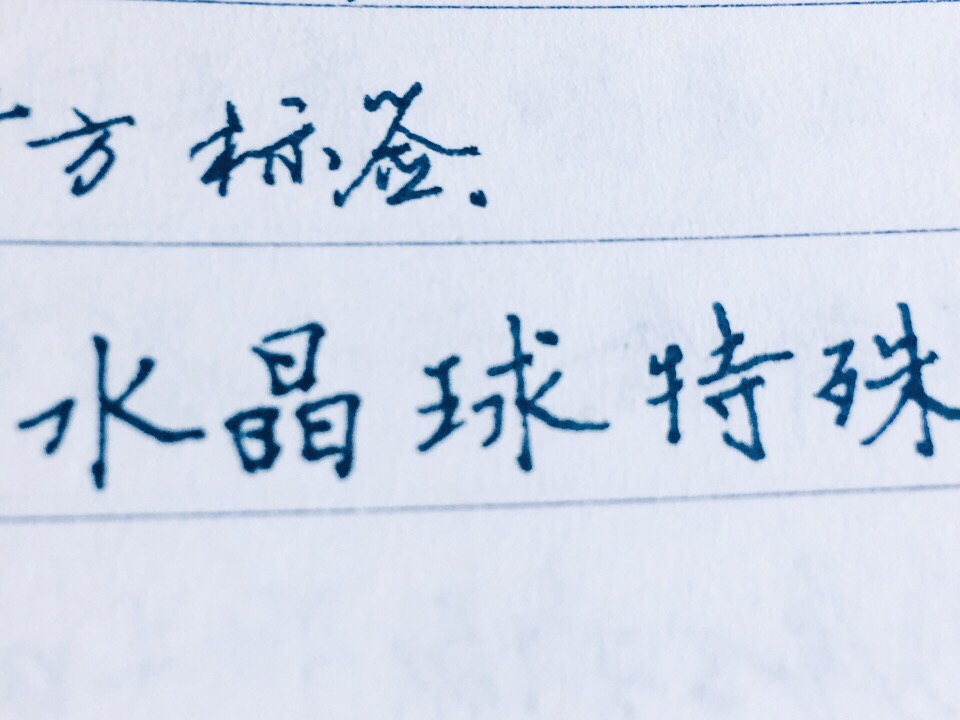 方标签.
水晶球特殊